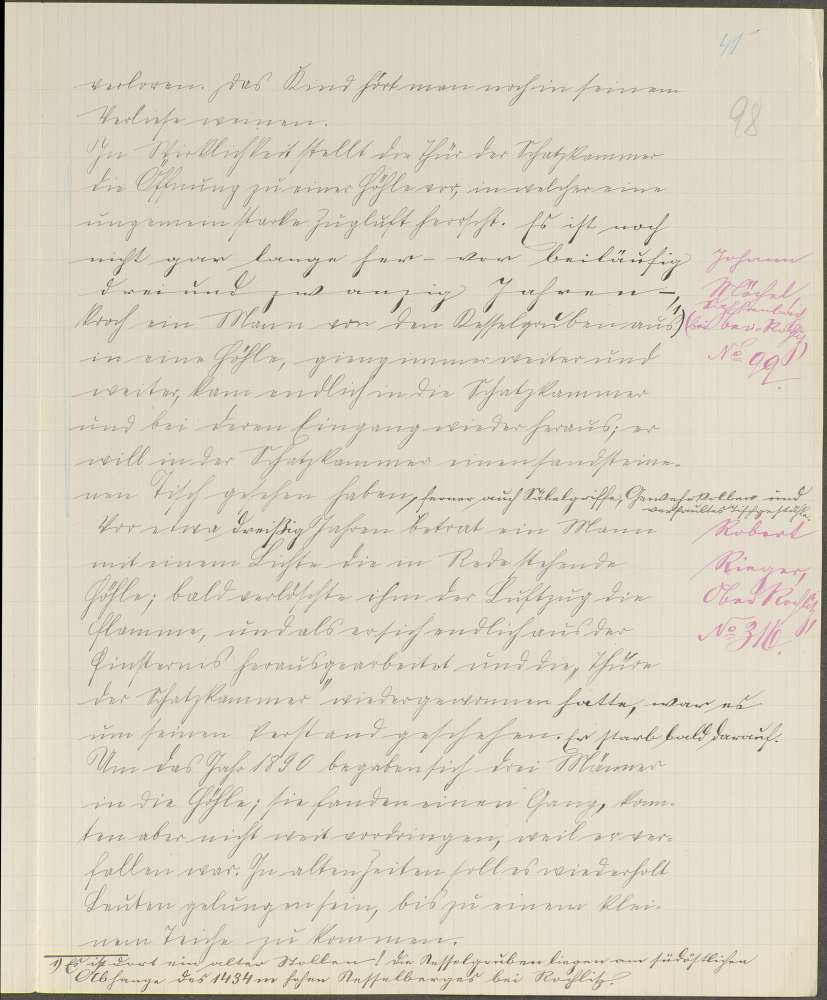 41
98
verloren. Das Kind hört man noch in seinem
Verliese weinen.
In Wirklichkeit stellt die Thür der Schatzkammer
die Öffnung zu einer Höhle vor, in welcher eine
ungemein starke Zugluft herrscht. Es ist noch
nicht gar lange her – vor beiläufig
dreiundzwanzig Jahren –,
kroch ein Mann von den Kesselgruben aus¹)
in eine Höhle, gieng immer weiter und
weiter, kam endlich in die Schatzkammer
und bei deren Eingang wieder heraus; er
will in der Schatzkammer einen sandsteine-
nen Tisch gesehen haben, ferner auch Säbelgriffe, Gewehrkolben und
verfaultes Tischgestühle.
Johann
Möchel
(bei Ober-Rochlitz
No 99!)
Vor etwa dreißig Jahren betrat ein Mann
mit einem Lichte die in Rede stehende
Höhle; bald verlöschte ihm der Luftzug die
Flamme, und als er sich endlich aus der
Finsternis herausgearbeitet und die „Thüre
der Schatzkammer" wiedergewonnen hatte, war es
um seinen Verstand geschehen. Er starb bald darauf.
Robert
Rieger,
Ober Rochlitz
No 316!
Um das Jahr 1890 begaben sich drei Männer
in die Höhle; sie fanden einen Gang, konn-
ten aber nicht weit vordringen, weil er ver-
fallen war. In alten Zeiten soll es wiederholt
Leuten gelungen sein, bis zu einem klei-
nem Teiche zu kommen.
¹) Es ist dort ein alter Stollen! Die Kesselgruben liegen am südöstlichen
Abhange des 1434 m hohen Kesselberges bei Rochlitz!